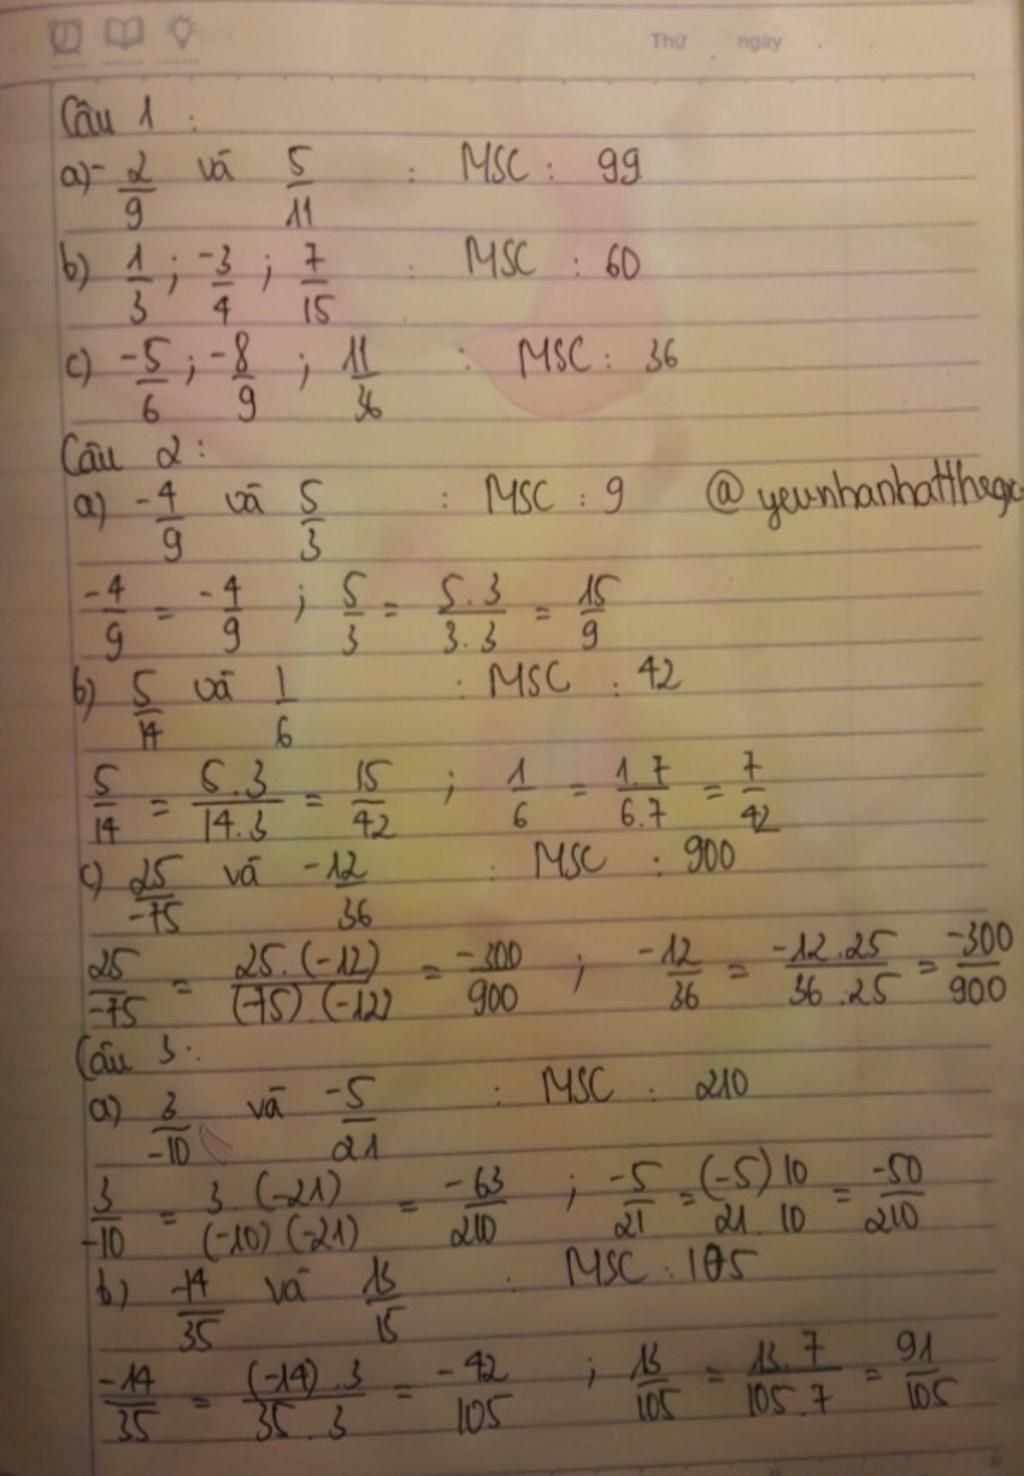 Thứ ngày
Câu 1 :
a) -2/9 và 5/11 : MSC : 99
b) 1/3 ; -3/4 ; 7/15 : MSC : 60
c) -5/6 ; -8/9 ; 11/36 : MSC : 36
Câu 2 :
a) -4/9 và 5/3 : MSC : 9 @yeunhanhatthegi
-4/9 = -4/9 ; 5/3 = 5.3/3.3 = 15/9
b) 5/14 và 1/6 : MSC : 42
5/14 = 5.3/14.3 = 15/42 ; 1/6 = 1.7/6.7 = 7/42
c) 25/-75 và -12/36 : MSC : 900
25/-75 = 25.(-12)/(-75).(-12) = -300/900 ; -12/36 = -12.25/36.25 = -300/900
Câu 3 :
a) 3/-10 và -5/21 : MSC : 210
3/-10 = 3.(-21)/(-10).(-21) = -63/210 ; -5/21 = (-5)10/21.10 = -50/210
b) -14/35 và 13/15 : MSC : 105
-14/35 = (-14).3/35.3 = -42/105 ; 13/105 = 13.7/105.7 = 91/105